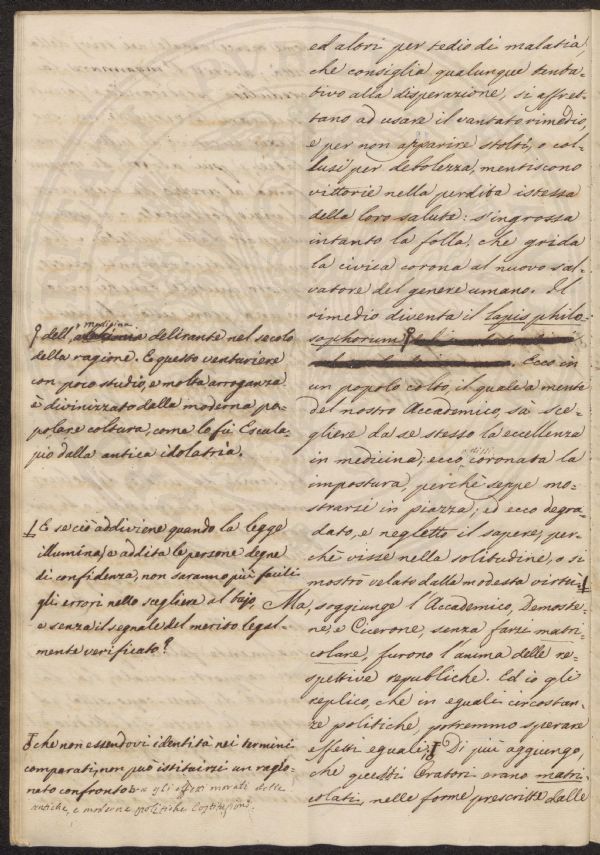 ed altri per tedio di malatìa
che consiglia qualunque tenta-
tivo alla disperazione, si affret-
tano ad usare il vantato rimedio,
e per non apparire stolti, o col-
lusi per debolezza, mentiscono
vittorie nella perdita istessa
della loro salute: s'ingrossa
intanto la folla, che grida
la civica corona al nuovo sal-
vatore del genere umano. Il
rimedio diventa il lapis philo-
sophorum
. Ecco in
un popolo colto, il quale a mente
del nostro Accademico, sà sce-
gliere da se stesso la eccellenza
in medicina; ecco coronata la
impostura perchè seppe mo-
strarsi in piazza; ed ecco degra-
dato, e negletto il sapere, per-
chè visse nella solitudine, o si
mostrò velato dalle modesta virtù
Ma, soggiunge l'Accademico, Demoste-
ne, e Cicerone, senza farsi matri-
colare, furono l'anima delle re-
spettive repubbliche. Ed io gli
replico, che in eguali circostan-
ze politiche, potremmo sperare
effetti eguali. Di più aggiungo,
che questi Oratori erano matri-
colati, nelle forme prescritte dalle
medicina
dell' delirante nel secolo
della ragione. E questo venturiere
con poco studio, e molta arroganza
è divinizzato dalla moderna po-
polare coltura, come lo fù Escula-
pio dalla antica idolatrìa.
E se ciò addiviene quando la legge
illumina, e addita le persone degne
di confidenza, non saranno più facili
gli errori nello scegliere al bujo,
e senza il segnale del merito legal-
mente verificato?
che non essendovi identità nei termini
comparati, non può istituirsi un ragio-
nato confronto gli effetti morali delle
antiche, e moderne politiche Costituzioni.